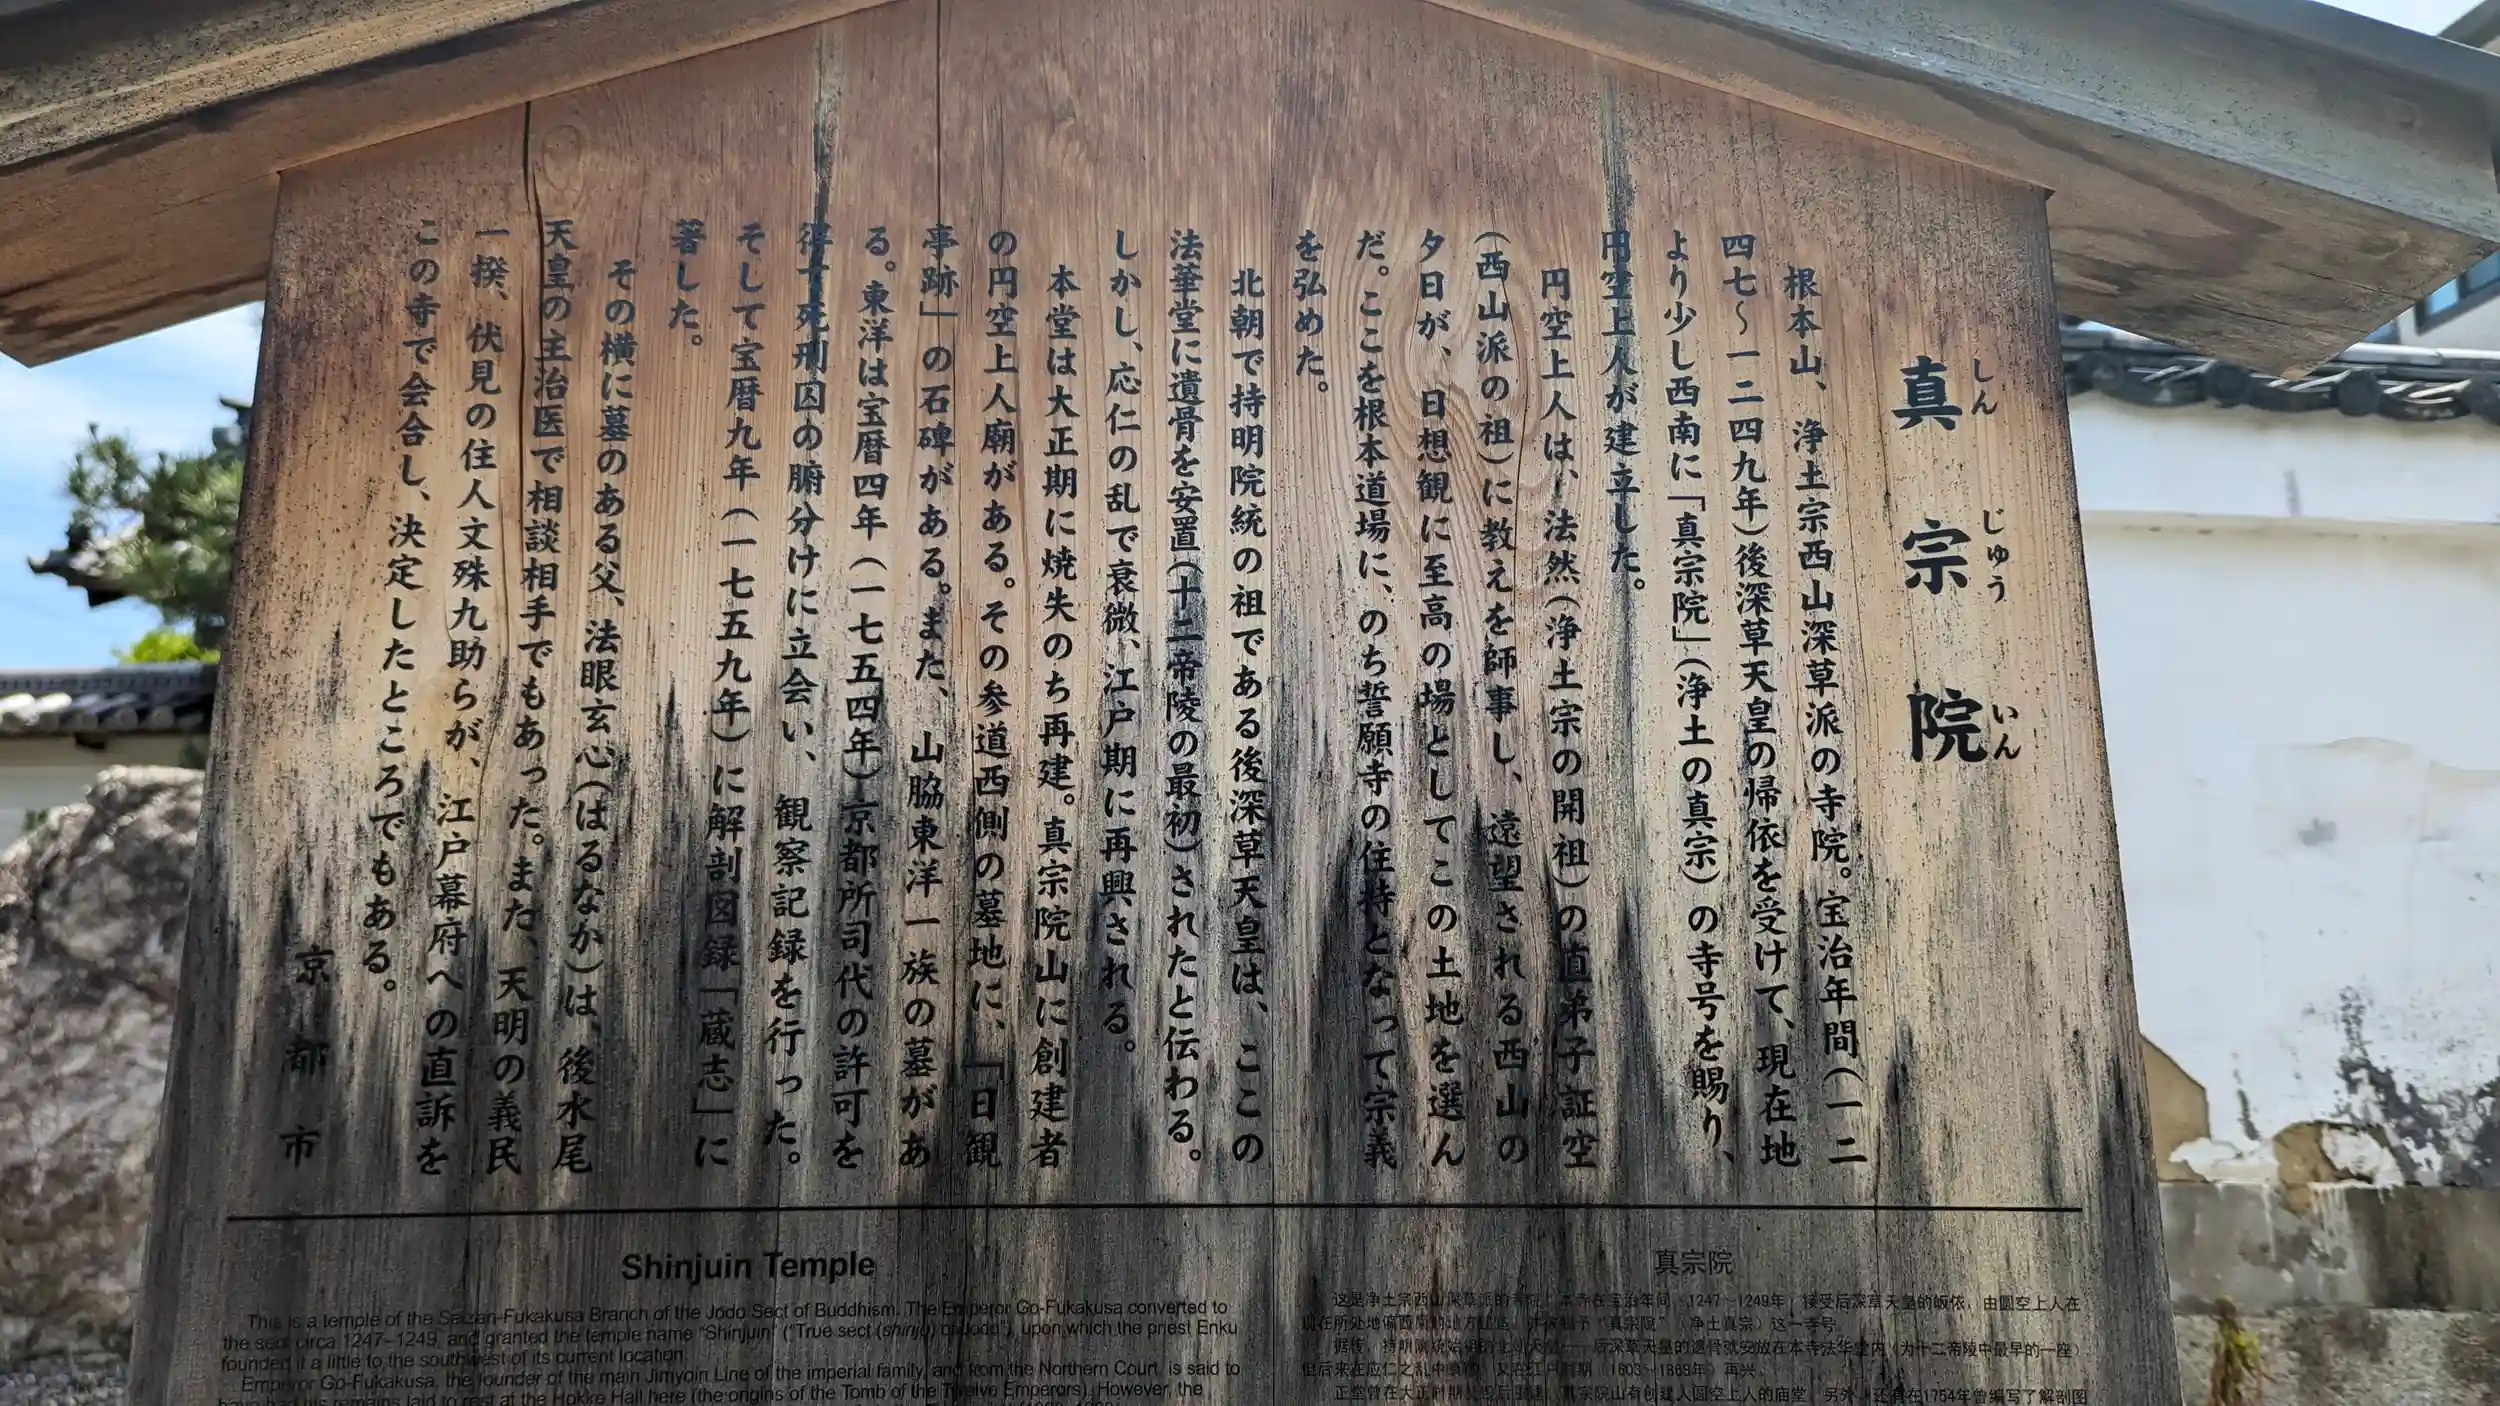 真宗院
しん じゅう いん
根本山、浄土宗西山深草派の寺院。宝治年間(一二
四七〜一二四九年)後深草天皇の帰依を受けて、現在地
より少し西南に「真宗院」(浄土の真宗)の寺号を賜り、
円空上人が建立した。
円空上人は、法然(浄土宗の開祖)の直弟子証空
(西山派の祖)に教えを師事し、遠望される西山の
夕日が、日想観に至高の場としてこの土地を選ん
だ。ここを根本道場に、のち誓願寺の住持となって宗義
を弘めた。
北朝で持明院統の祖である後深草天皇は、ここの
法華堂に遺骨を安置(十二帝陵の最初)されたと伝わる。
しかし、応仁の乱で衰微、江戸期に再興される。
本堂は大正期に焼失のち再建。真宗院山に創建者
の円空上人廟がある。その参道西側の墓地に、「日観
亭跡」の石碑がある。また、山脇東洋一族の墓があ
る。東洋は宝暦四年(一七五四年)京都所司代の許可を
得て死刑囚の腑分けに立会い、観察記録を行った。
そして宝暦九年(一七五九年)に解剖図録「蔵志」に
著した。
その横に墓のある父、法眼玄心(はるなか)は、後水尾
天皇の主治医で相談相手でもあった。また、天明の義民
一揆、伏見の住人文殊九助らが、江戸幕府への直訴を
この寺で会合し、決定したところでもある。
京都市
Shinjuin Temple
This is a temple of the Seizan-Fukakusa Branch of the Jodo Sect of Buddhism. The Emperor Go-Fukakusa converted to
the sect circa 1247–1249, and granted the temple name "Shinjuin" ("True sect (shinju) of Jodo"), upon which the priest Enku
founded it a little to the southwest of its current location.
Emperor Go-Fukakusa, the founder of the main Jimyoin Line of the imperial family, and from the Northern Court, is said to
have had his remains laid to rest at the Hokke Hall here (the origins of the Tomb of the Twelve Emperors). However, the
真宗院
这是净土宗西山深草派的寺院。本寺在宝治年间(1247~1249年)接受后深草天皇的皈依,由圆空上人在
现在所处地偏西南的地方建造,并被赐予"真宗院"(净土真宗)这一寺号。
后深草天皇的遗骨就安放在本寺法华堂内(为十二帝陵中最早的一座)。
但后来在应仁之乱中衰微,又在江户时期(1603~1868年)再兴。
真宗院山有创建人圆空上人的庙堂。另外,还有在1754年曾编写了解剖图